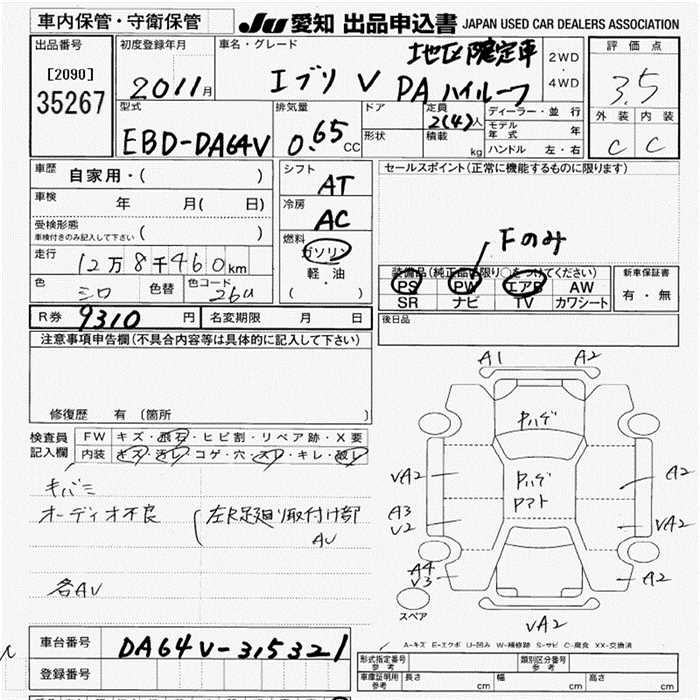 車内保管・守衛保管
JU 愛知 出品申込書 JAPAN USED CAR DEALERS ASSOCIATION
出品番号
[2090]
35267
初度登録年月
2011月
車名・グレード
地区限定車
エブリ V PA ハイルーフ
2WD
・
4WD
評価点
3.5
外装 内装
C C
型式
EBD-DA64V
排気量
0.65CC
ドア
形状
定員
2(4)人
積載 kg
ディーラー・並行
モデル年式 年
ハンドル 左・右
車歴 自家用・( )
車検 年 月( 日)
受検形態
車検付きのみ記入して下さい ( )
走行 12万8千460km
色 シロ 色替 色コード 26U
R券 9310円 名変期限 月 日
シフト AT
冷房 AC
燃料
ガソリン
軽・油
( )
セールスポイント(正常に機能するものに限ります)
Fのみ
装備品(純正品に限り○をつけてください)
PS PW エアB AW
SR ナビ TV カワシート
新車保証書
有・無
後日品
注意事項申告欄(不具合内容等は具体的に記入して下さい)
修復歴 有 〔箇所 〕
検査員記入欄
FW キズ・飛石・ヒビ割・リペア跡・X要
内装 キズ・汚レ・コゲ・穴・スレ・キレ・破レ
キバミ
オーディオ不良
左R足廻り取付け部
AU
各AU
A1 A2
Pハゲ
Pハゲ
Pマト
VA2
A3
V2
A4
V3
A2
VA2
A2
VA2
スペア
A-キズ E-エクボ U-凹み W-補修跡 S-サビ C-腐食 XX-交換済
車台番号 DA64V-315321
登録番号
形式指定番号 参考
類別区分番号 参考
車庫証明用 参考 長さ cm 幅 cm 高さ cm